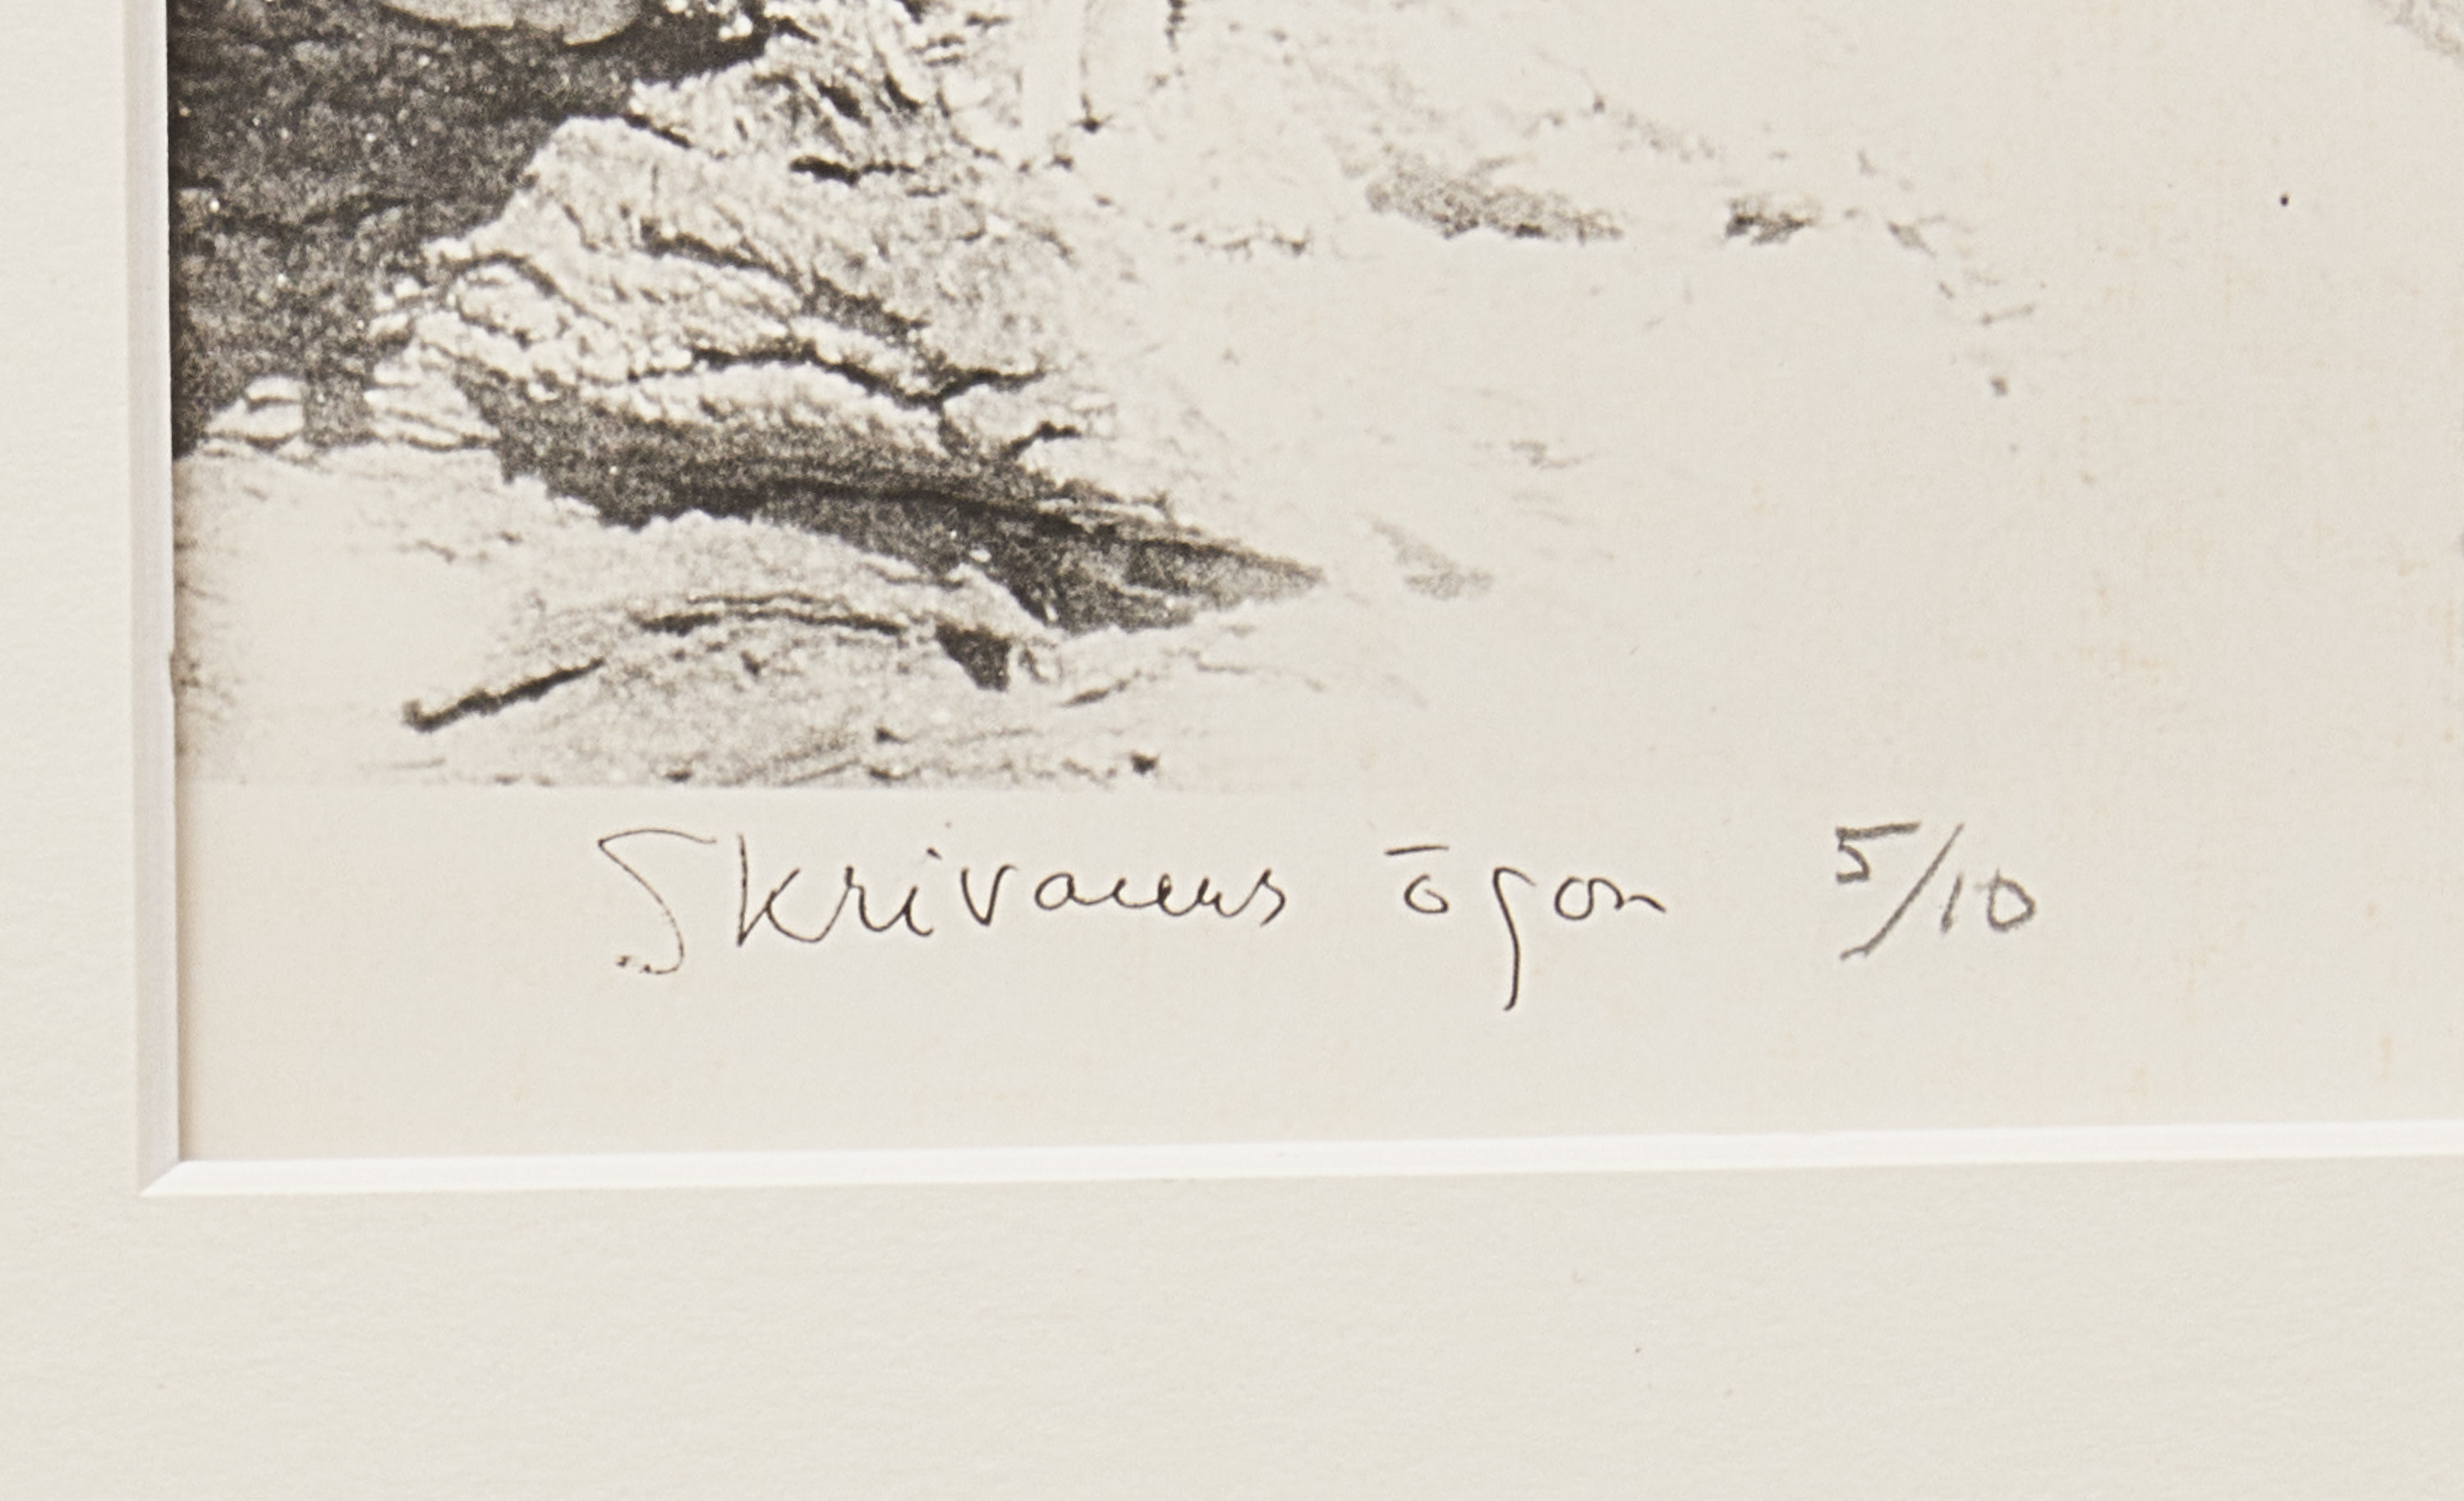 Skrivarens ögon 5/10